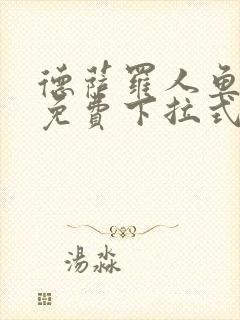 德薩羅人魚
免費下拉式
湯淼